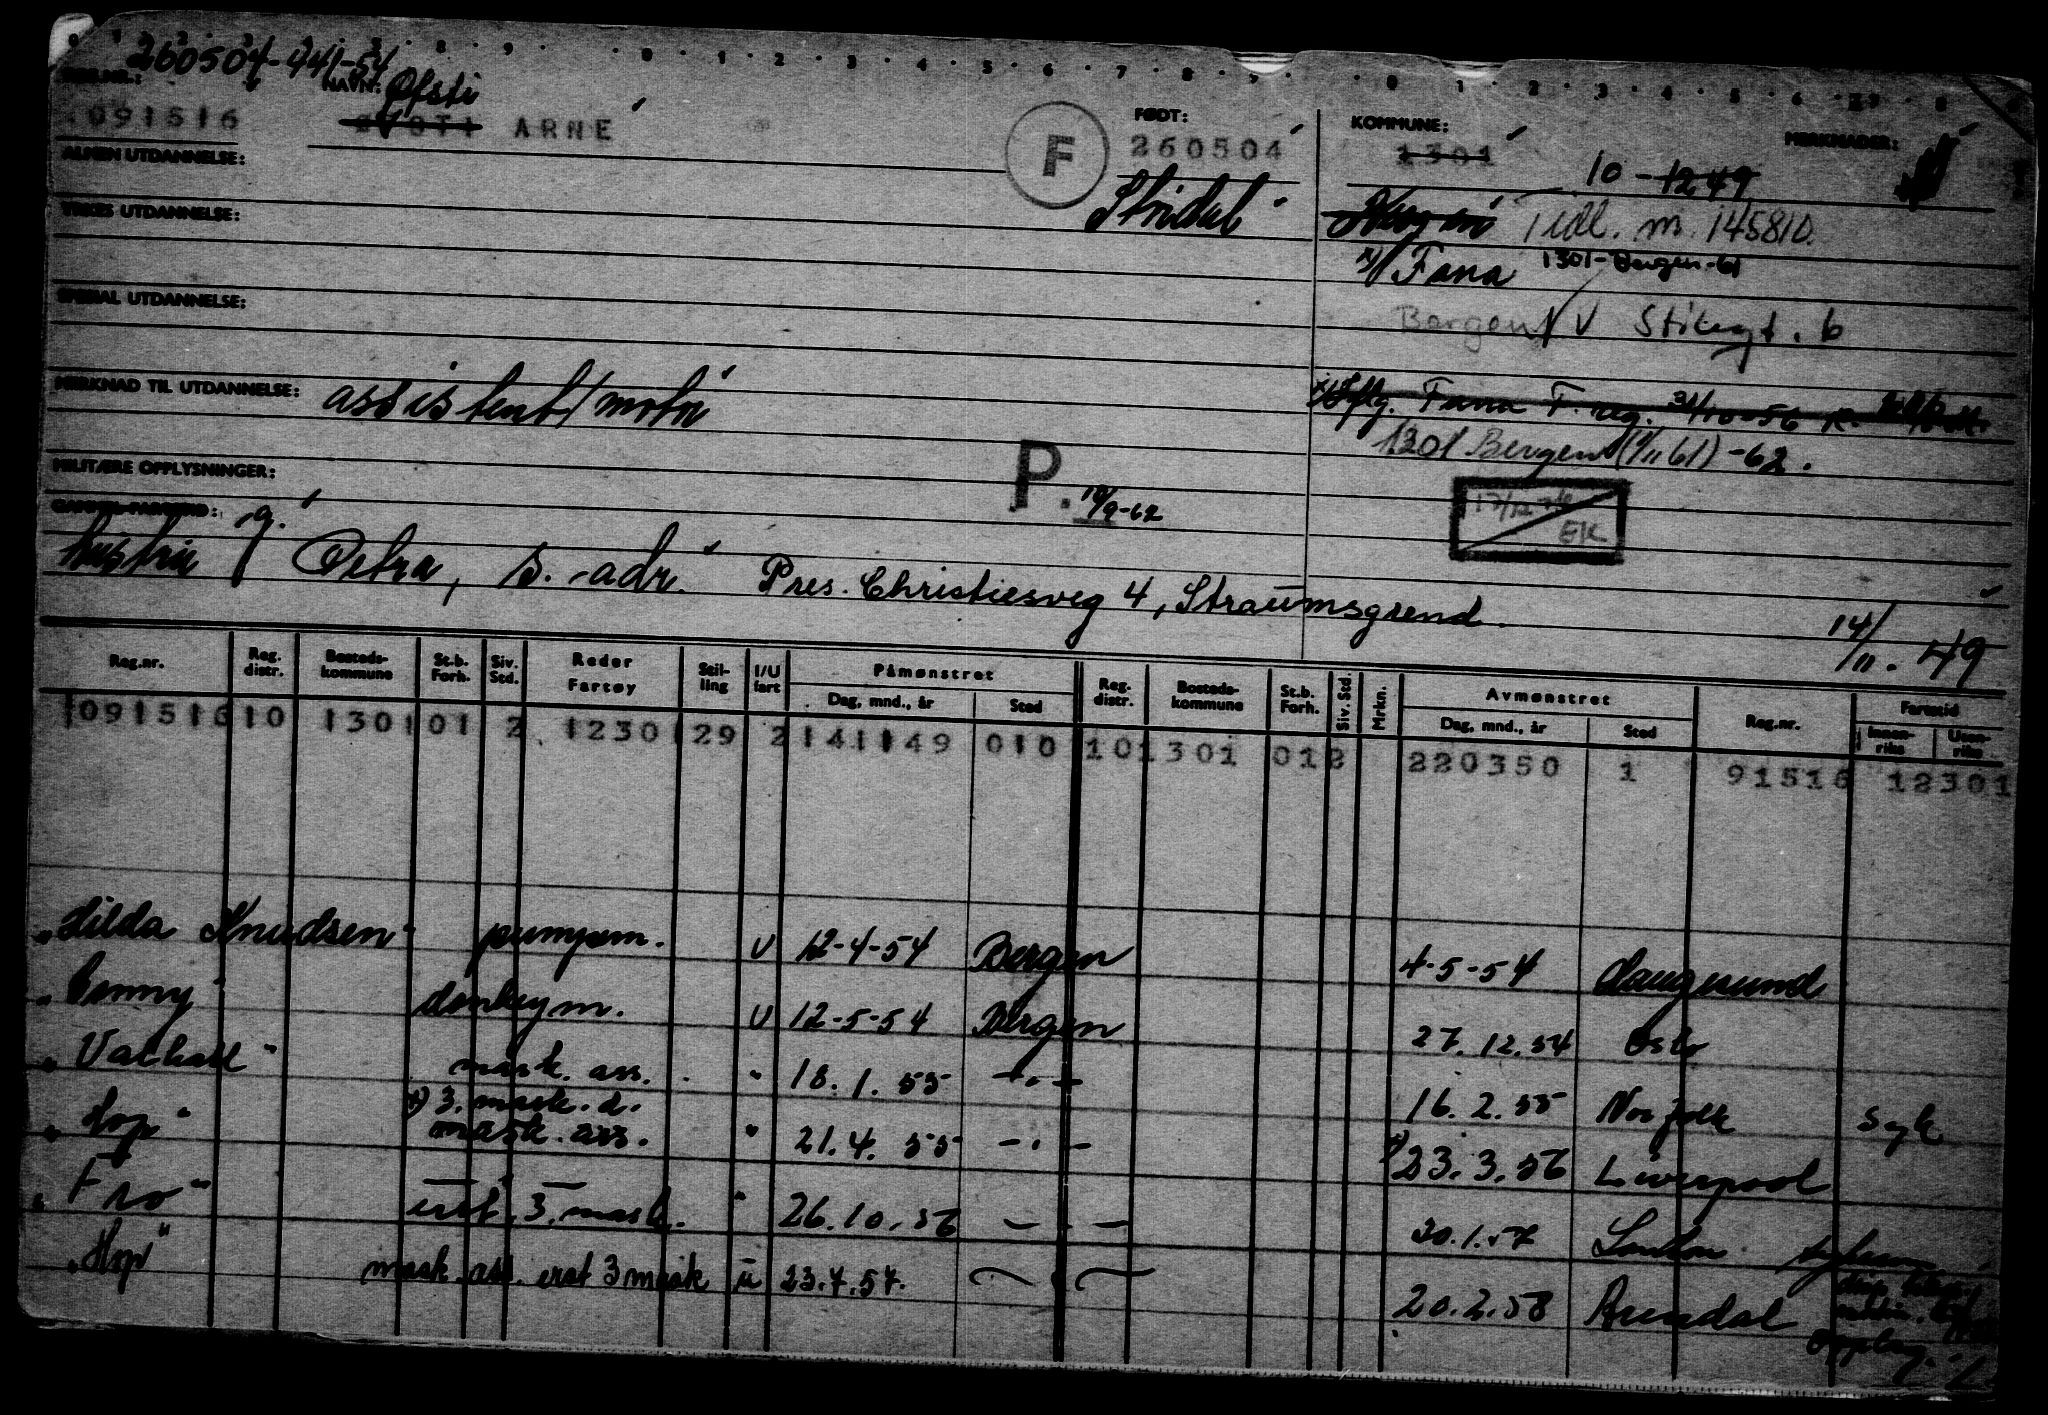 260504-441-54
REG.NR.: NAVN: Øfsti FØDT: KOMMUNE: MERKNADER:
091516 ARNE F 260504 1301
10 - 1249
ALMEN UTDANNELSE:
Bergen Tidl. m. 145810.
YRKES UTDANNELSE:
x) Fana 1301-Bergen-61
Bergen
SPESIAL UTDANNELSE:
MERKNAD TIL UTDANNELSE: assistent/motor
x) Iflg. Fana F. reg. 31/10-56
1301 Bergen -62.
MILITÆRE OPPLYSNINGER:
P. 18/9-62
17/12
EK
GAMMEL FARTSTID:
g. hustru Petra, s. adr. Pres. Christiesveg 4, Straumsgrend.
14/11. 49
Reg.nr. Reg. distr. Bosteds- kommune St.b. Forh. Siv. Std. Reder Fartøy Stil- ling I/U fart Påmønstret Reg. distr. Bosteds- kommune St.b. Forh. Siv. Std. Mrkn. Avmønstret Reg.nr. Farstid
Dag, mnd., år Sted Dag, mnd., år Sted Innen- riks Uten- riks
1091516 10 1301 01 2 1230 129 2 141149 010 10 1301 012 220350 1 91516 12301
"Hilda Knudsen" pumpem. U 12-4-54 Bergen 4-5-54 Haugesund
"Ronny" donkeym. U 12-5-54 Bergen 27.12.54 Oslo
"Valhall" mask. ass. " 18.1.55 -"- 16.2.55 Norfolk syk
x) 3. mask. d.
"Hop" mask. ass. " 21.4.55 -"- x) 23.3.56 Liverpool
"Fro" erst. 3. mask. " 26.10.56 -"- 30.1.57 London
"Hop" mask. ass. erst 3 mask u 23.7.57. -"- 20.2.58 Arendal